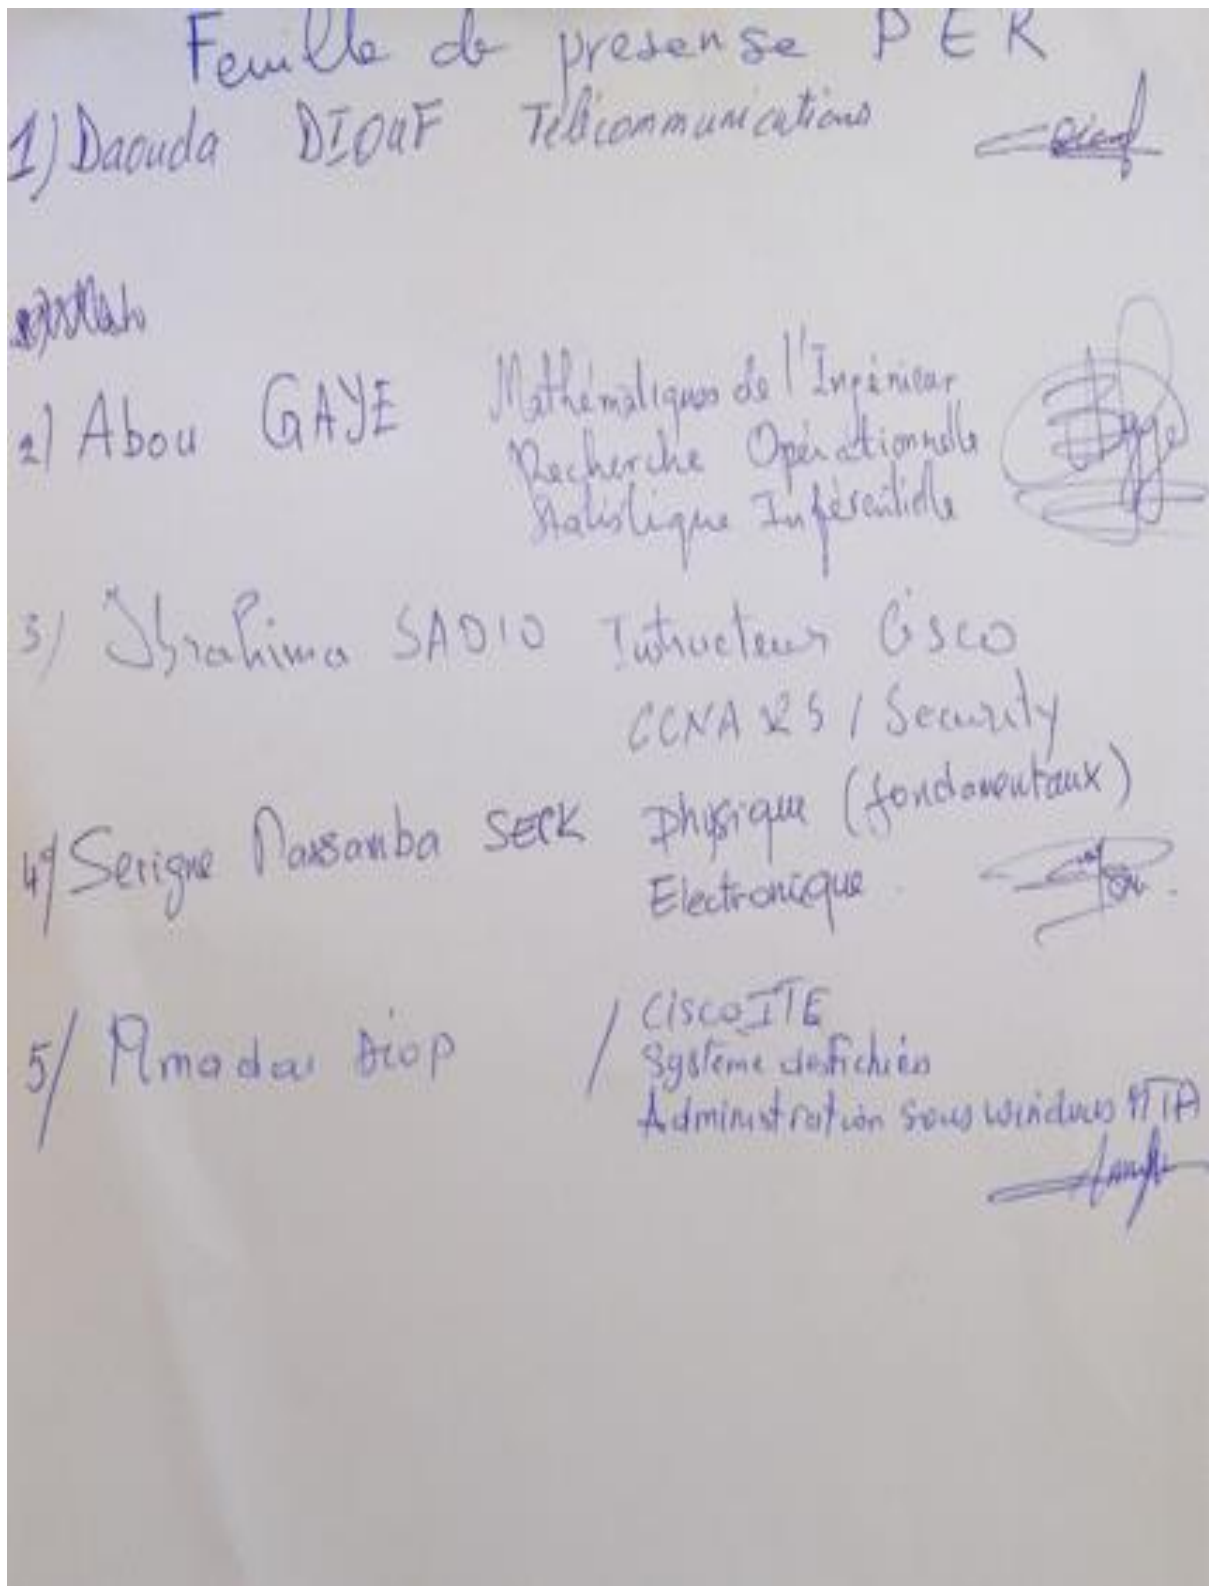 Feuille de presense PER
1) Daouda DIOUF Télécommunications
2) Abou GAYE Mathématiques de l'Ingénieur
Recherche Opérationnelle
Statistique Inférentielle
3/ Ibrahima SADIO Intructeur Cisco
CCNA RS / Security
4/ Serigne Massamba SECK Physique (fondamentaux)
Electronique
5/ Amadou Diop / Cisco ITE
Système de fichiers
Administration sous windows MTA